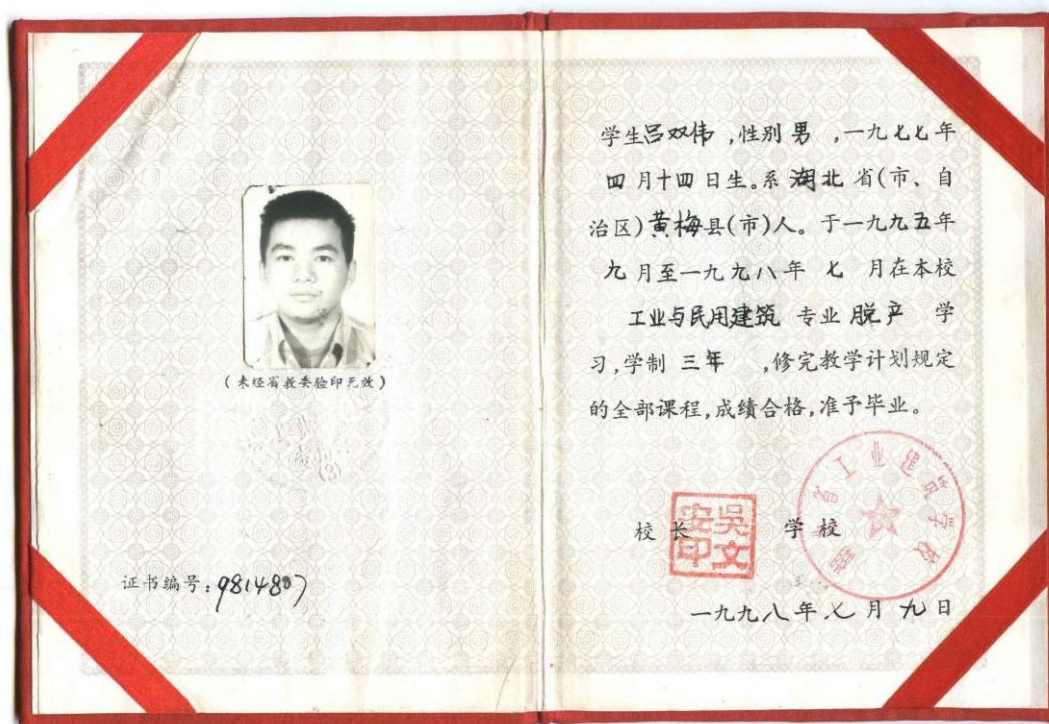 (未经省教委验印无效)
证书编号:9814807
学生吕双伟,性别男,一九七七年
四月十四日生。系湖北省(市、自
治区)黄梅县(市)人。于一九九五年
九月至一九九八年七月在本校
工业与民用建筑专业脱产学
习,学制三年,修完教学计划规定
的全部课程,成绩合格,准予毕业。
省工业建筑学校
校长 吴文安印 学校
一九九八年七月九日